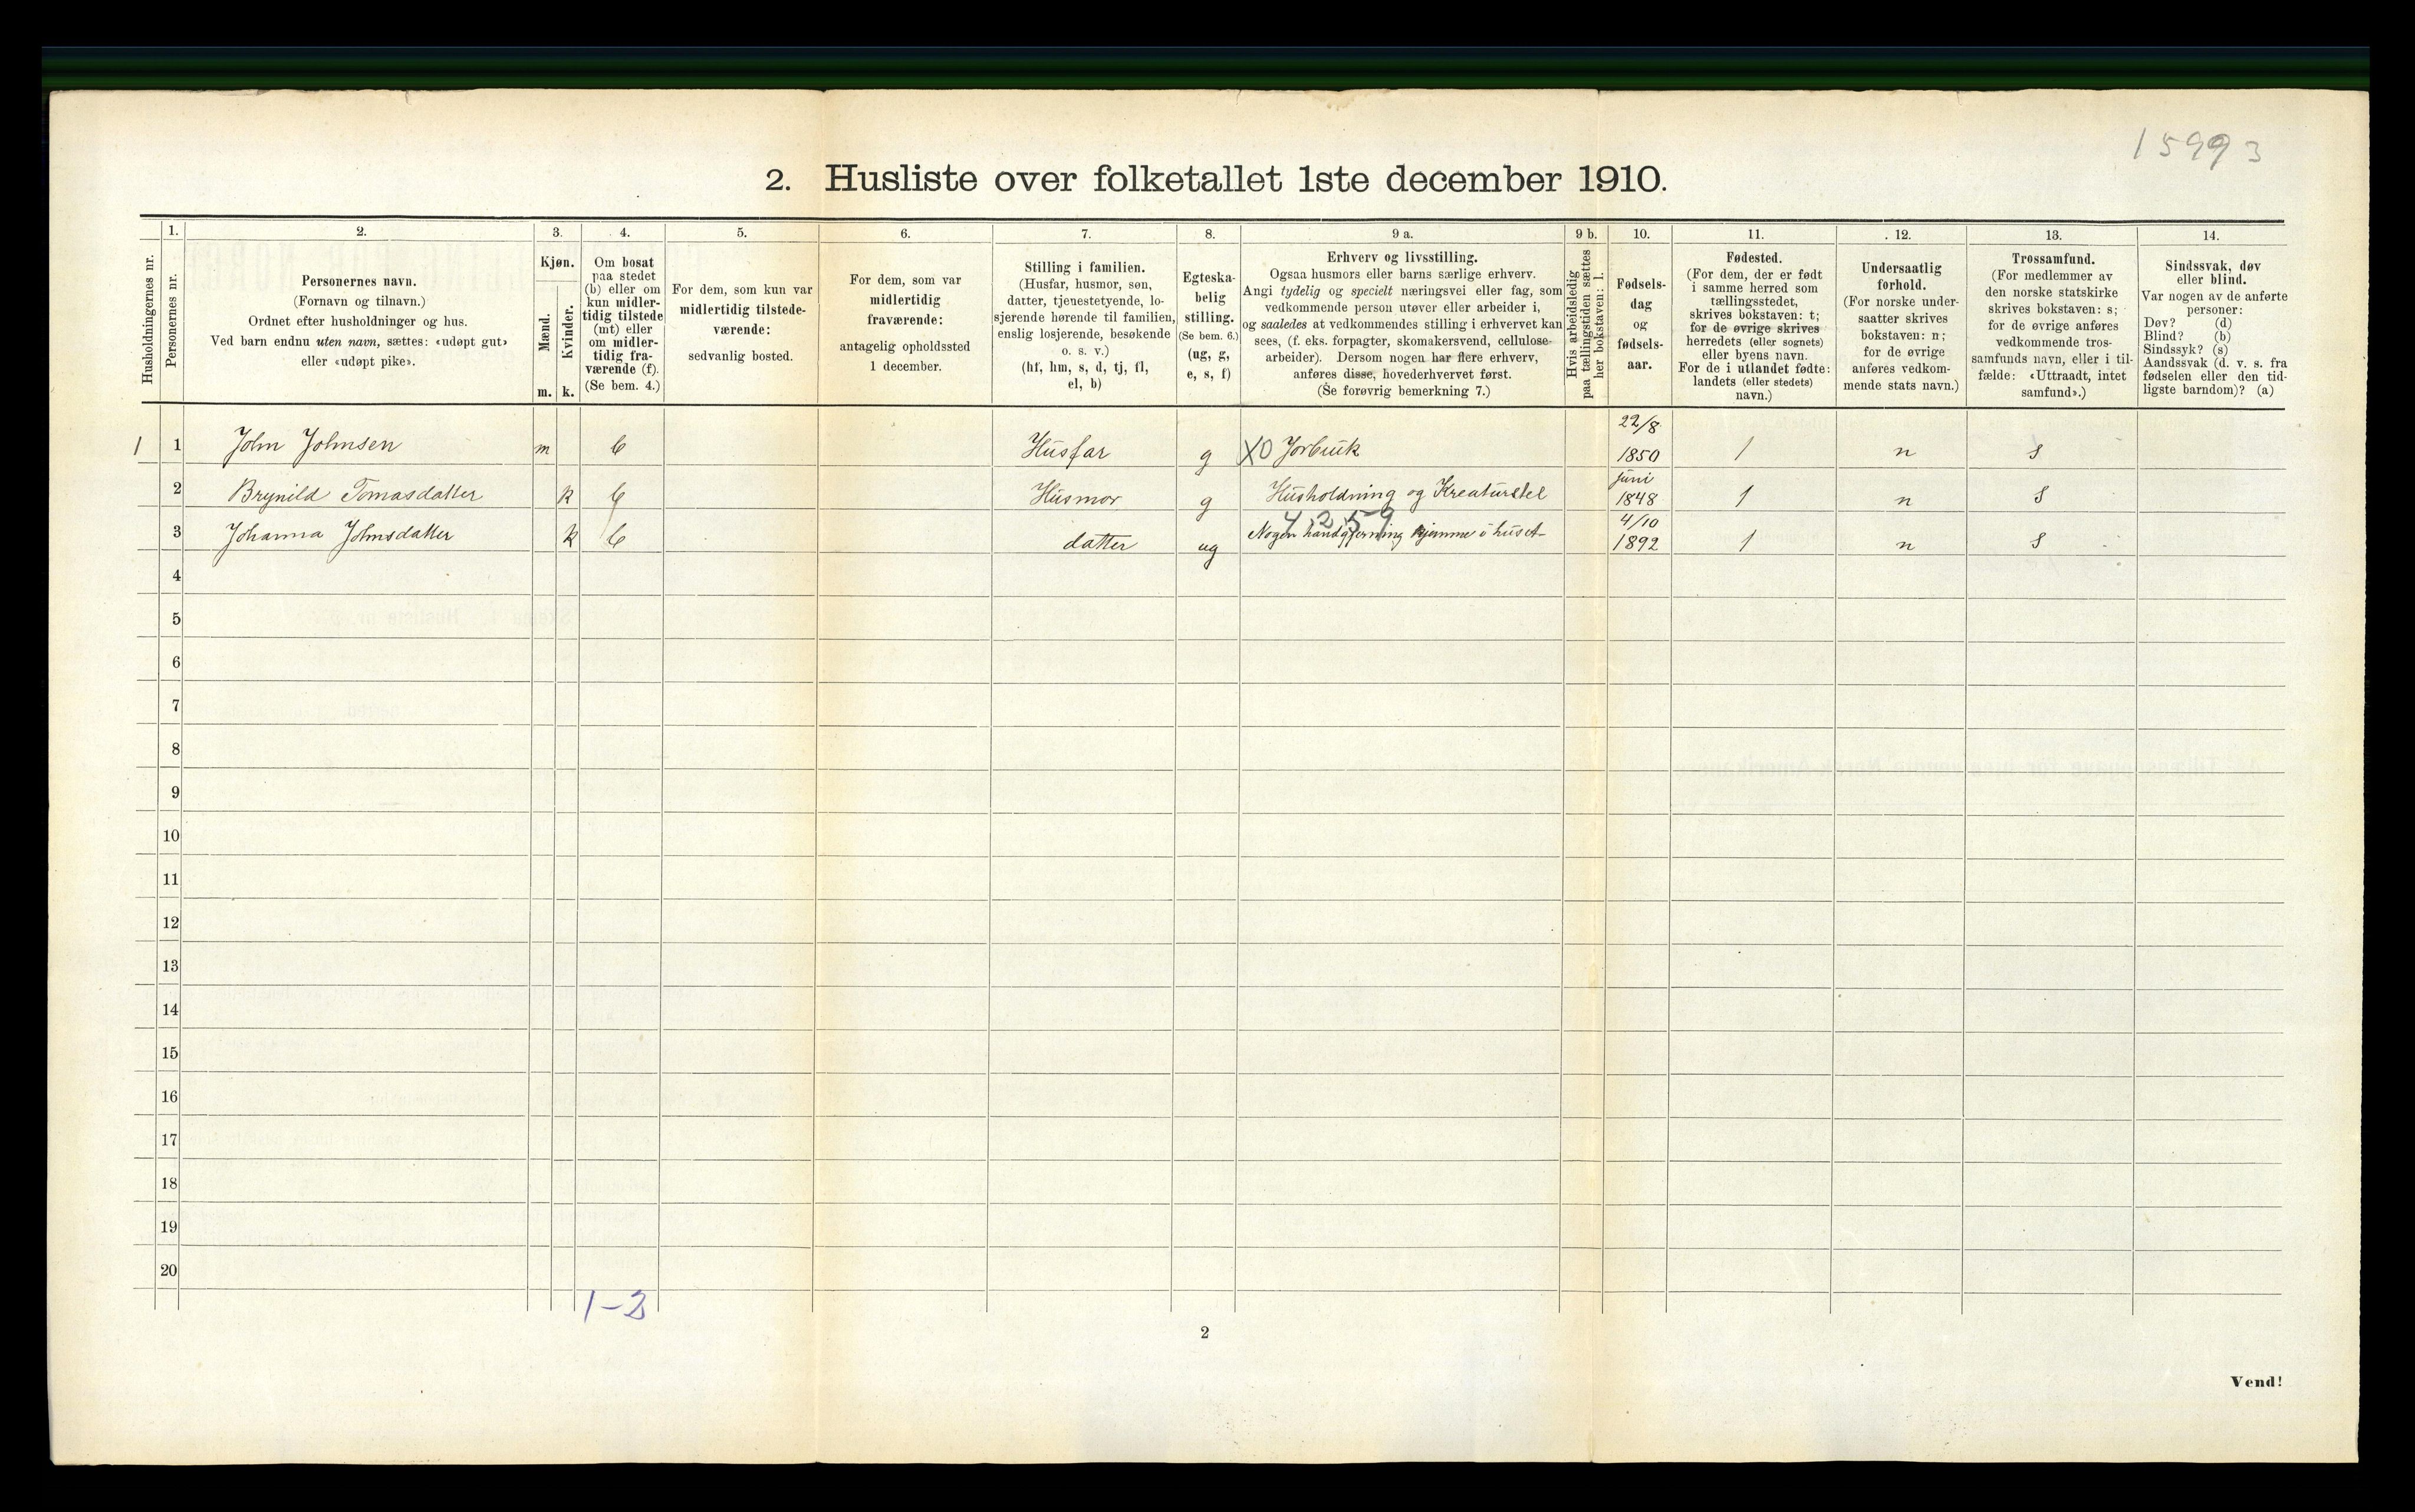 15993
2. Husliste over folketallet 1ste december 1910.
Husholdningernes nr.
1. Personernes nr.
2. Personernes navn.
(Fornavn og tilnavn.)
Ordnet efter husholdninger og hus.
Ved barn endnu uten navn, sættes: «udøpt gut»
eller «udøpt pike».
3. Kjøn.
Mænd. m.
Kvinder. k.
4. Om bosat
paa stedet
(b) eller om
kun midler-
tidig tilstede
(mt) eller
om midler-
tidig fra-
værende (f).
(Se bem. 4.)
5. For dem, som kun var
midlertidig tilstede-
værende:
sedvanlig bosted.
6. For dem, som var
midlertidig
fraværende:
antagelig opholdssted
1 december.
7. Stilling i familien.
(Husfar, husmor, søn,
datter, tjenestetyende, lo-
sjerende hørende til familien,
enslig losjerende, besøkende
o. s. v.)
(hf, hm, s, d, tj, fl,
el, b)
8. Egteska-
belig
stilling.
(Se bem. 6.)
(ug, g,
e, s, f)
9 a. Erhverv og livsstilling.
Ogsaa husmors eller barns særlige erhverv.
Angi tydelig og specielt næringsvei eller fag, som
vedkommende person utøver eller arbeider i,
og saaledes at vedkommendes stilling i erhvervet kan
sees, (f. eks. forpagter, skomakersvend, cellulose-
arbeider). Dersom nogen har flere erhverv,
anføres disse, hovederhvervet først.
(Se forøvrig bemerkning 7.)
9 b. Hvis arbeidsledig
paa tællingstiden sættes
her bokstaven: l.
10. Fødsels-
dag
og
fødsels-
aar.
11. Fødested.
(For dem, der er født
i samme herred som
tællingsstedet,
skrives bokstaven: t;
for de øvrige skrives
herredets (eller sognets)
eller byens navn.
For de i utlandet fødte:
landets (eller stedets)
navn.)
12. Undersaatlig
forhold.
(For norske under-
saatter skrives
bokstaven: n;
for de øvrige
anføres vedkom-
mende stats navn.)
13. Trossamfund.
(For medlemmer av
den norske statskirke
skrives bokstaven: s;
for de øvrige anføres
vedkommende tros-
samfunds navn, eller i til-
fælde: «Uttraadt, intet
samfund».)
14. Sindssvak, døv
eller blind.
Var nogen av de anførte
personer:
Døv? (d)
Blind? (b)
Sindssyk? (s)
Aandssvak (d. v. s. fra
fødselen eller den tid-
ligste barndom)? (a)
1 1 John Johnsen m b Husfar g XO Jorbruk 22/8 1850 t n s
2 Brynild Tomasdatter k b Husmor g Husholdning og Kreaturstel juni 1848 t n s
4,2,5-9
3 Johanna Johnsdatter k b datter ug Nogen handgjerning hjemme i huset 4/10 1892 t n s
4
5
6
7
8
9
10
11
12
13
14
15
16
17
18
19
20
1-2
2
Vend!